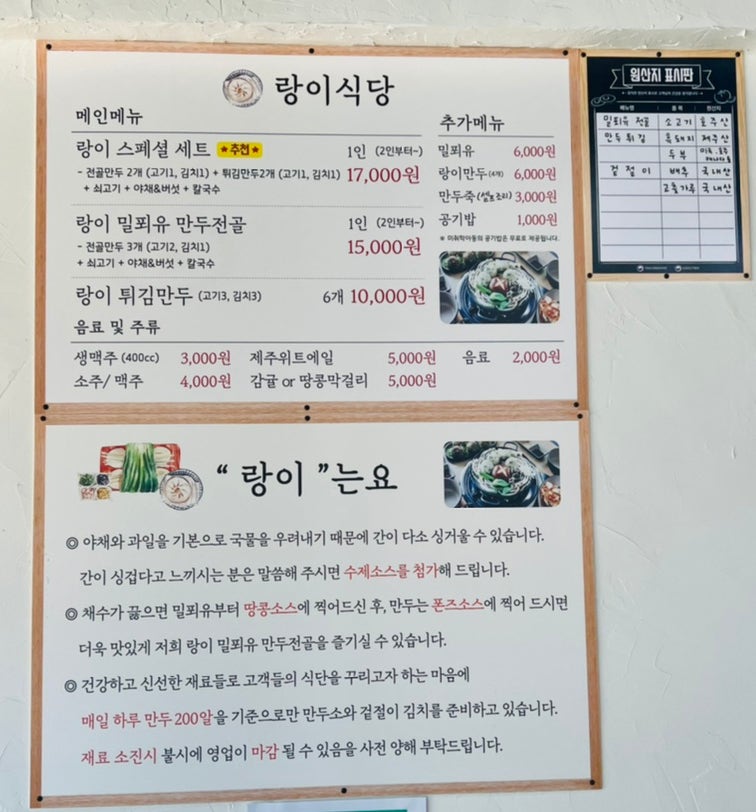 랑이식당
메인메뉴
랑이 스페셜 세트 ★추천★ 1인 (2인부터~)
- 전골만두 2개 (고기1, 김치1) + 튀김만두2개 (고기1, 김치1) 17,000원
+ 쇠고기 + 야채&버섯 + 칼국수
랑이 밀푀유 만두전골 1인 (2인부터~)
- 전골만두 3개 (고기2, 김치1) 15,000원
+ 쇠고기 + 야채&버섯 + 칼국수
랑이 튀김만두 (고기3, 김치3) 6개 10,000원
추가메뉴
밀푀유 6,000원
랑이만두(4개) 6,000원
만두죽(셀프조리) 3,000원
공기밥 1,000원
※ 미취학아동의 공기밥은 무료로 제공됩니다.
음료 및 주류
생맥주 (400cc) 3,000원 제주위트에일 5,000원 음료 2,000원
소주/ 맥주 4,000원 감귤 or 땅콩막걸리 5,000원
원산지 표시판
메뉴명 품목 원산지
밀푀유 전골 소고기 호주산
만두튀김 흑돼지 제주산
두부
겉절이 배추 국내산
고춧가루 국내산
“ 랑이 ”는요
◎ 야채와 과일을 기본으로 국물을 우려내기 때문에 간이 다소 싱거울 수 있습니다.
간이 싱겁다고 느끼시는 분은 말씀해 주시면 수제소스를 첨가해 드립니다.
◎ 채수가 끓으면 밀푀유부터 땅콩소스에 찍어드신 후, 만두는 폰즈소스에 찍어 드시면
더욱 맛있게 저희 랑이 밀푀유 만두전골을 즐기실 수 있습니다.
◎ 건강하고 신선한 재료들로 고객들의 식단을 꾸리고자 하는 마음에
매일 하루 만두 200알을 기준으로만 만두소와 겉절이 김치를 준비하고 있습니다.
재료 소진시 불시에 영업이 마감 될 수 있음을 사전 양해 부탁드립니다.